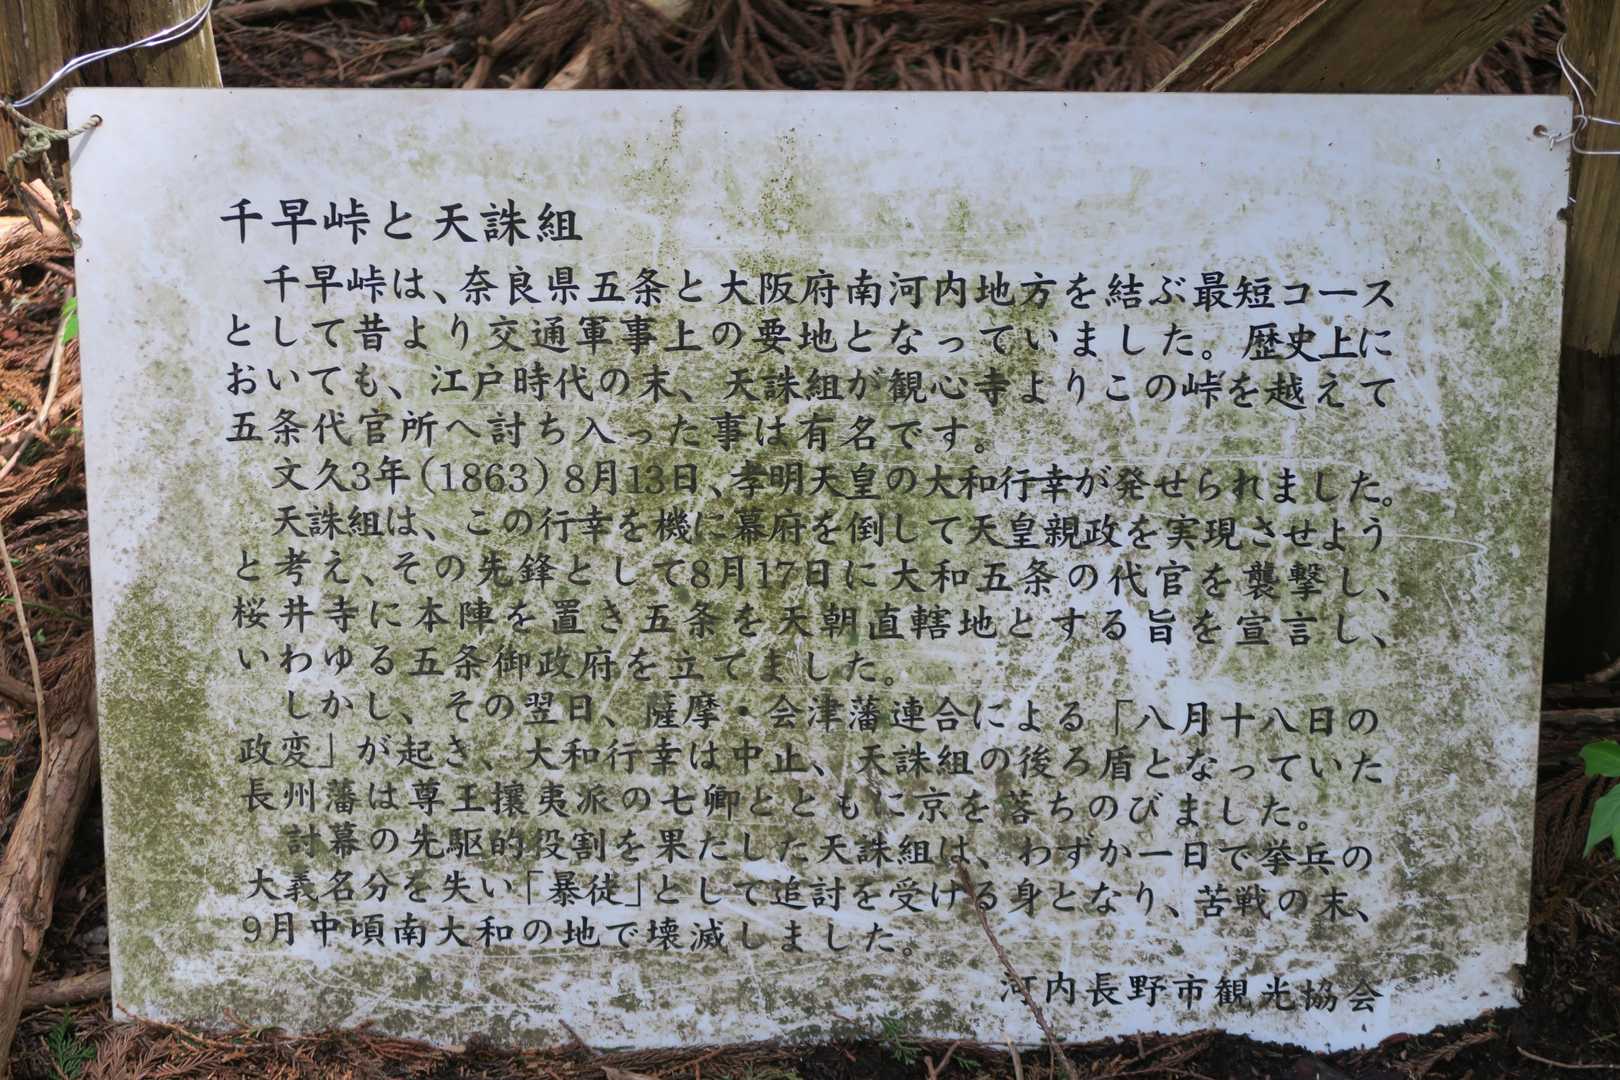 千早峠と天誅組
千早峠は、奈良県五条と大阪府南河内地方を結ぶ最短コース
として昔より交通軍事上の要地となっていました。歴史上に
おいても、江戸時代の末、天誅組が観心寺よりこの峠を越えて
五条代官所へ討ち入った事は有名です。
文久3年(1863)8月13日、孝明天皇の大和行幸が発せられました。
天誅組は、この行幸を機に幕府を倒して天皇親政を実現させよう
と考え、その先鋒として8月17日に大和五条の代官を襲撃し、
桜井寺に本陣を置き五条を天朝直轄地とする旨を宣言し、
いわゆる五条御政府を立てました。
しかし、その翌日、薩摩・会津藩連合による「八月十八日の
政変」が起き、大和行幸は中止、天誅組の後ろ盾となっていた
長州藩は尊王攘夷派の七卿とともに京を落ちのびました。
討幕の先駆的役割を果たした天誅組は、わずか一日で挙兵の
大義名分を失い「暴徒」として追討を受ける身となり、苦戦の末、
9月中頃南大和の地で壊滅しました。
河内長野市観光協会